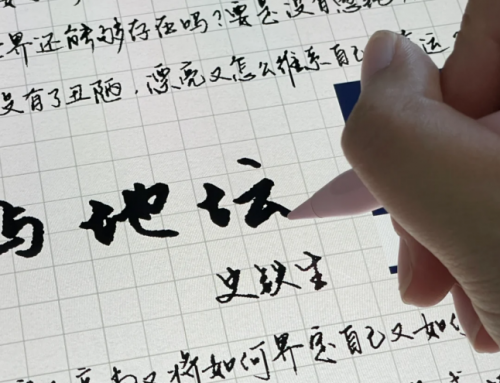 界还能够存在吗?要是没有愚钝
没有了丑陋,漂亮又怎么维系自己
与地坛
史铁生
高尚又将如何界定自己又如何